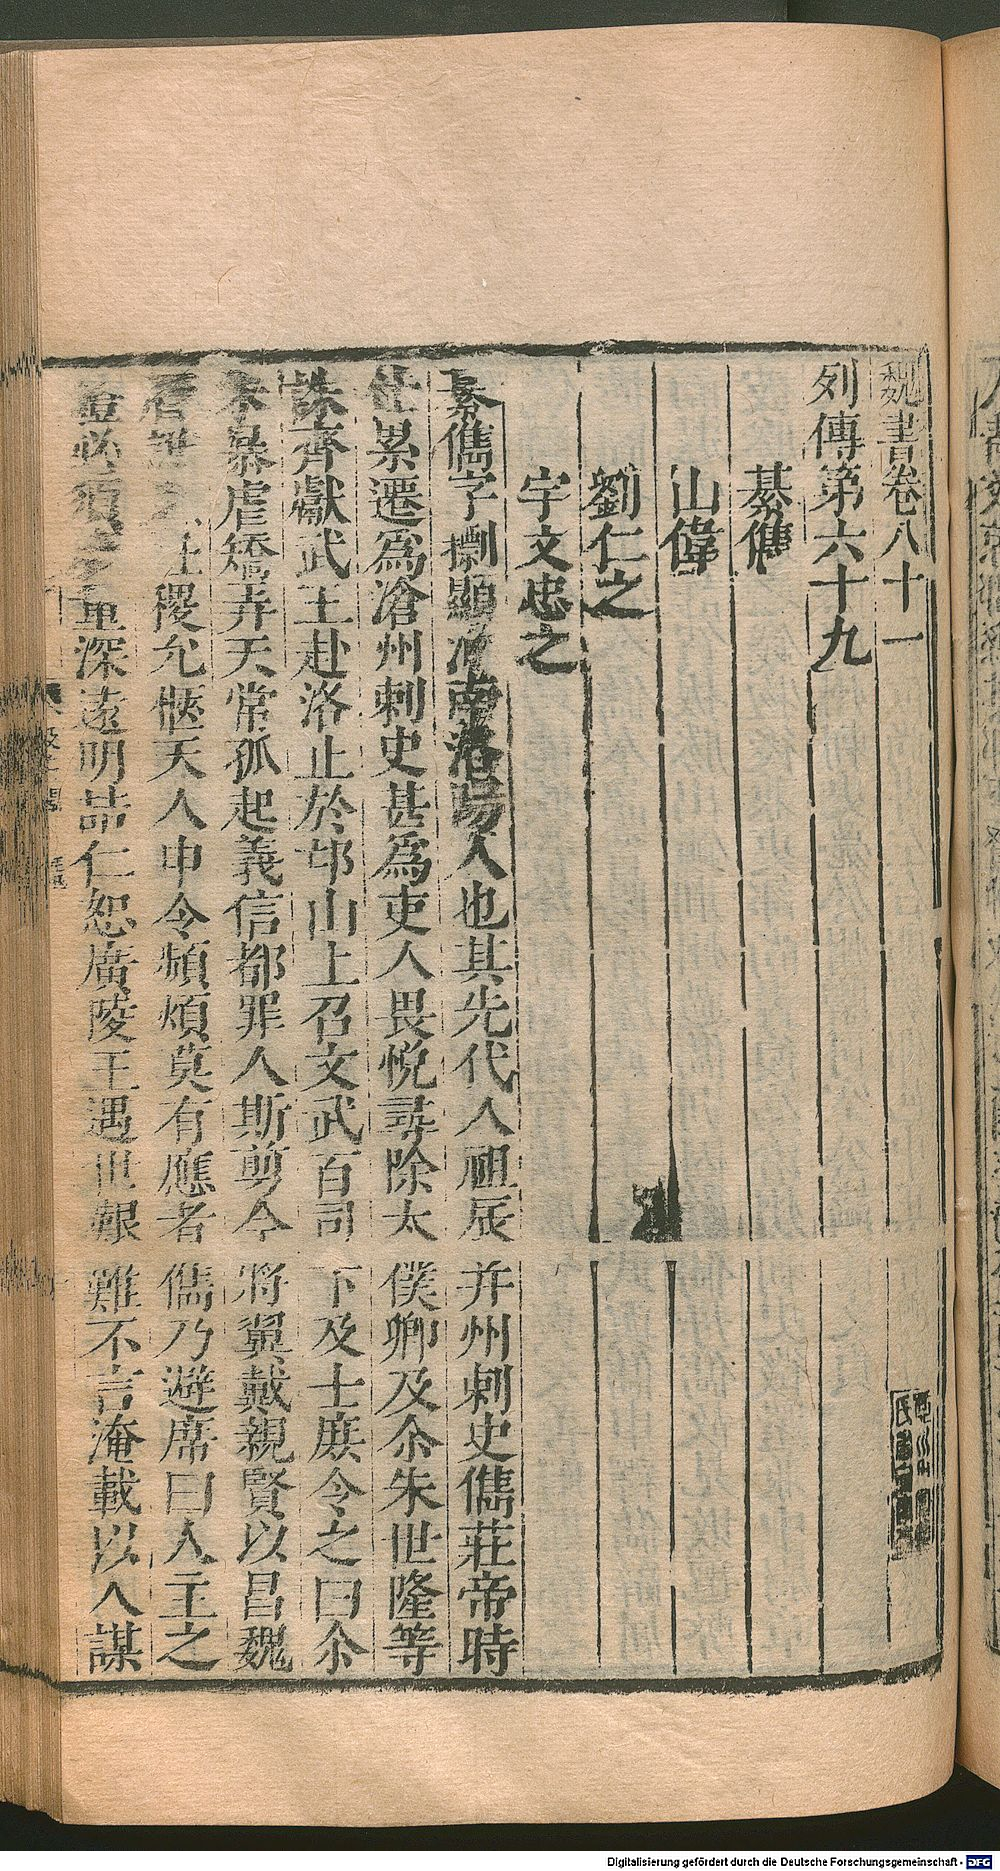 魏書卷八十一
列傳第六十九
綦儁
山偉
劉仁之
宇文忠之
綦儁字摽顯河南洛陽人也其先代人祖辰并州刺史儁莊帝時
仕累遷爲滄州刺史甚爲吏人畏悅尋除太僕卿及尒朱世隆等
誅齊獻武王赴洛止於邙山上召文武百司下及士庶令之曰尒
朱暴虐矯弄天常孤起義信都罪人斯剪今將翼戴親賢以昌魏
社稷允愜天人申令頻煩莫有應者儁乃避席曰人主之
必須 重深遠明喆仁恕廣陵王遇世艱難不言淹載以人謀
Digitalisierung gefördert durch die Deutsche Forschungsgemeinschaft - DFG